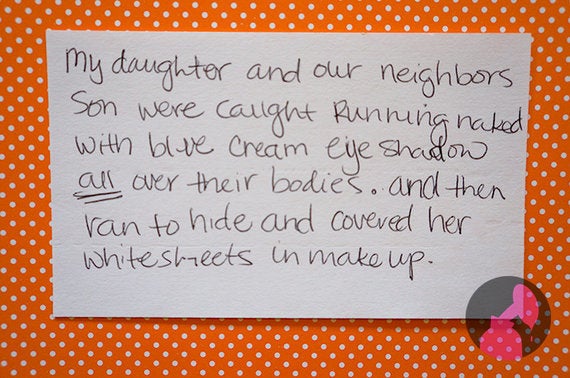 My daughter and our neighbors
Son were caught Running naked
with blue cream eye shadow
all over their bodies. and then
ran to hide and covered her
white sheets in make up.